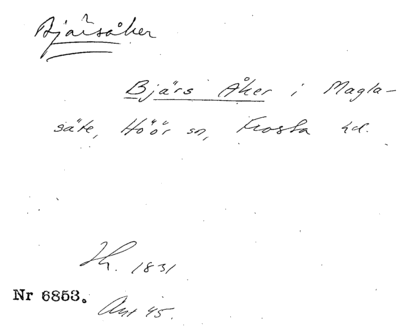 Bjärsåker
Bjärs Åker i Magla-
säte, Höör sn, Frosta hd.
Lh. 1831
Nr 6853.
Avt 45.